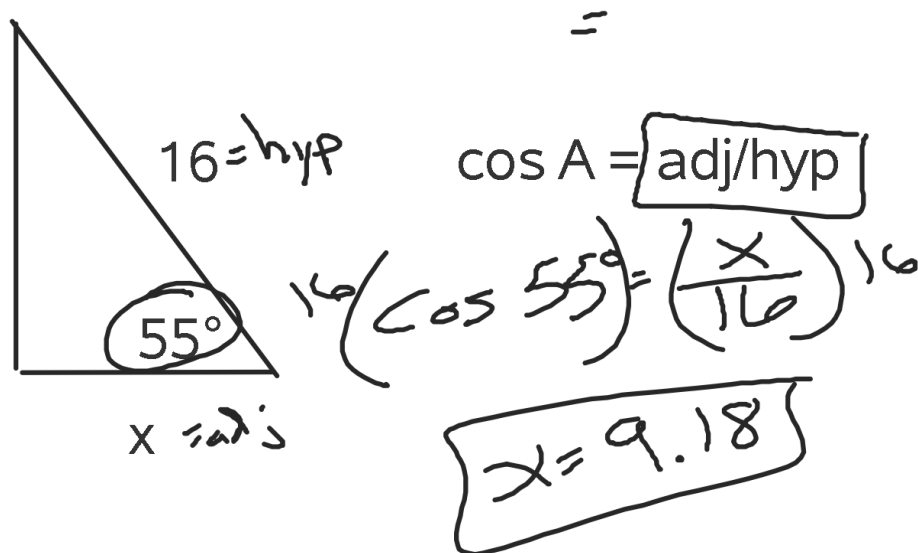 =
16 = hyp
cos A = adj/hyp
16(cos 55°) = (x/16)16
55°
x = adj
x = 9.18